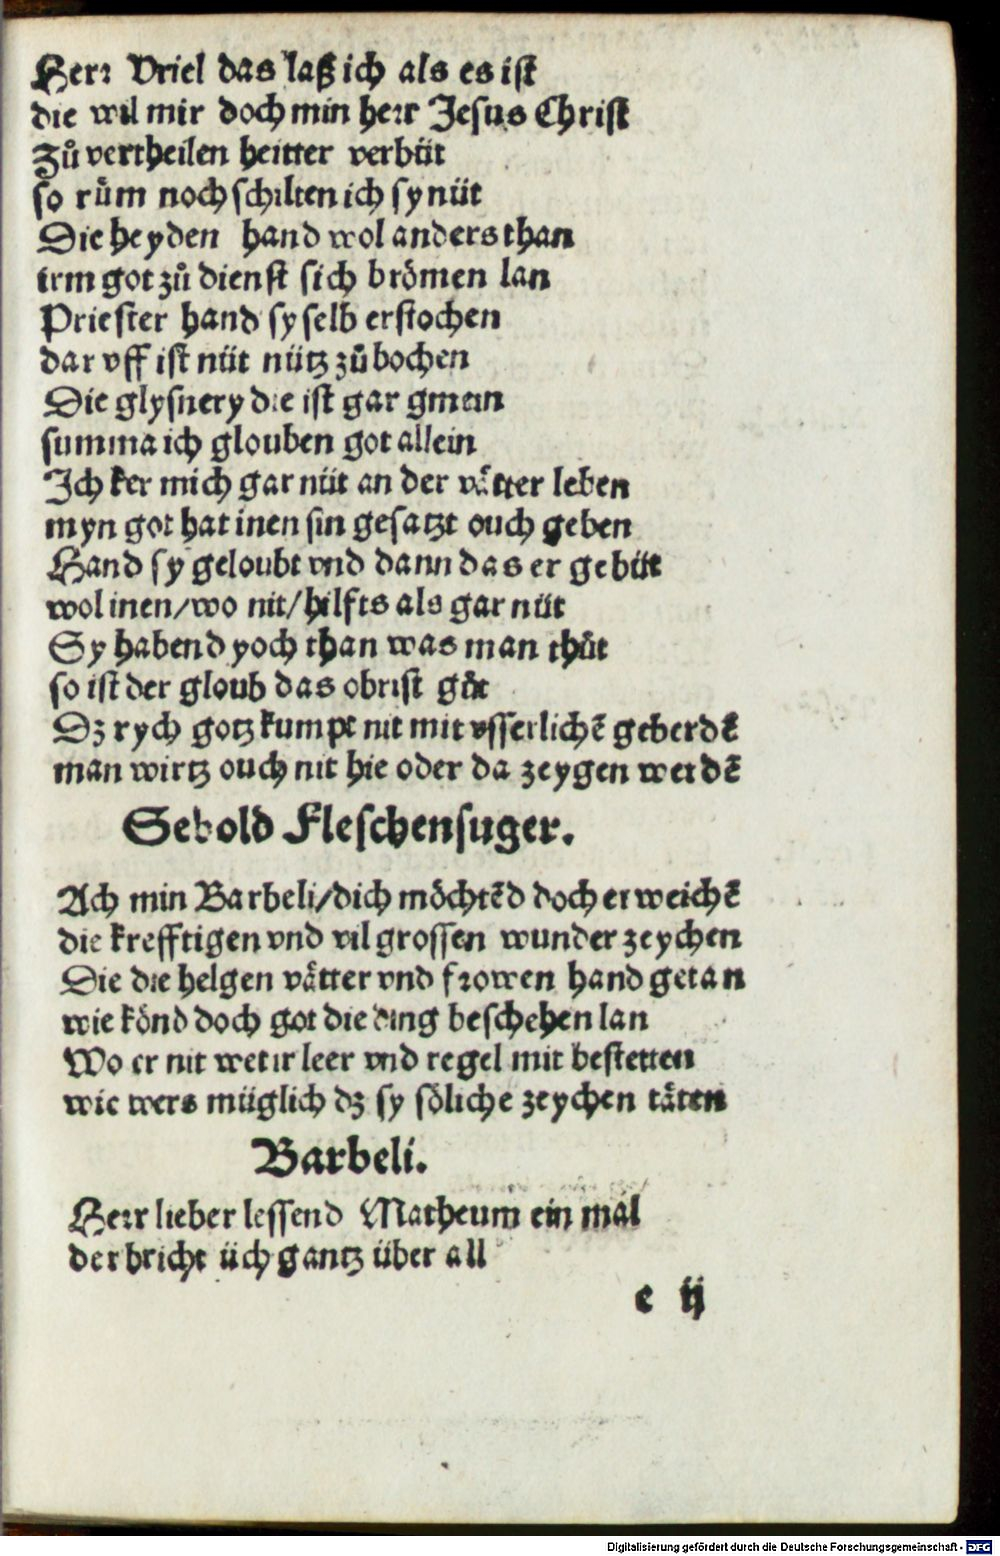 Herr Vriel das laß ich als es ist
die wil mir doch min herr Jesus Christ
Zů vertheilen heitter verbüt
so rům noch schilten ich sy nüt
Die heyden hand wol anders than
irm got zů dienst sich brömen lan
Priester hand sy selb erstochen
dar vff ist nüt nütz zů bochen
Die glysnery die ist gar gmein
summa ich glouben got allein
Ich ker mich gar nüt an der vätter leben
myn got hat inen sin gesatzt ouch geben
Hand sy geloubt vnd dann das er gebüt
wol inen/wo nit/hilfts als gar nüt
Sy habend yoch than was man thůt
so ist der gloub das obrist gůt
Dz rych gotz kumpt nit mit vsserlichē geberdē
man wirtz ouch nit hie oder da zeygen werdē
Sebold Fleschensuger.
Ach min Barbeli/dich möchtēd doch erweichē
die krefftigen vnd vil grossen wunder zeychen
Die die helgen vätter vnd frowen hand getan
wie könd doch got die ding beschehen lan
Wo er nit wet ir leer vnd regel mit bestetten
wie wers müglich dz sy söliche zeychen täten
Barbeli.
Herr lieber lessend Matheum ein mal
der bricht üch gantz über all
e ij
Digitalisierung gefördert durch die Deutsche Forschungsgemeinschaft - DFG